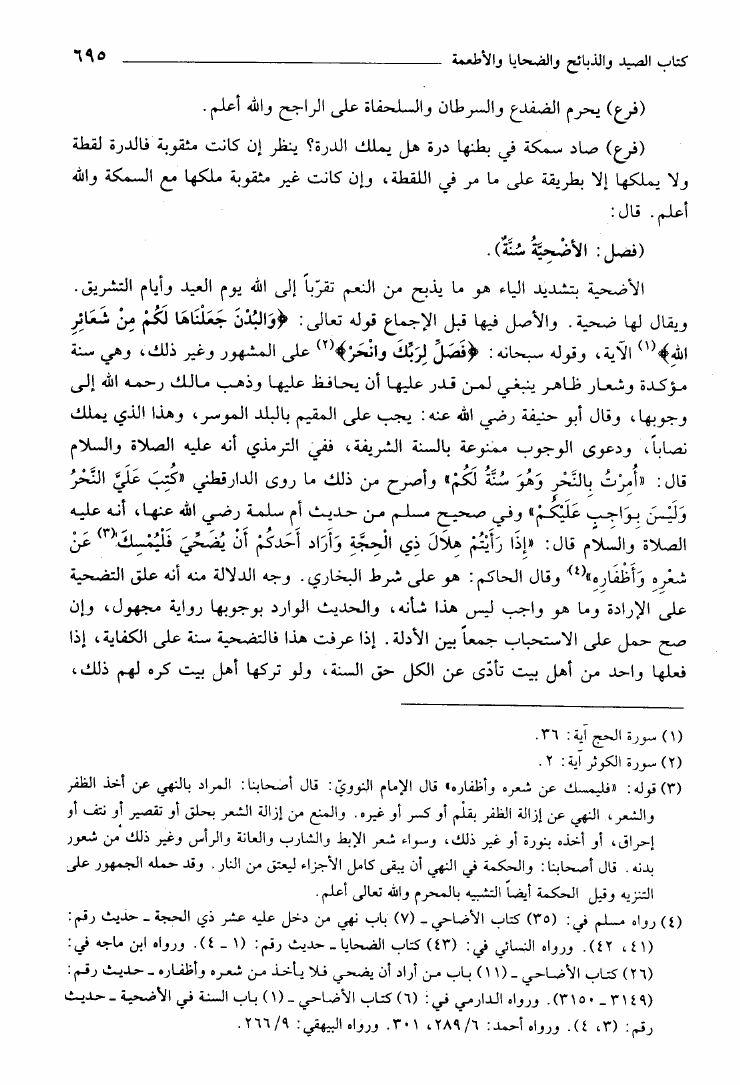 كتاب الصيد والذبائح والضحايا والأطعمة ٦٩٥
(فرع) يحرم الضفدع والسرطان والسلحفاة على الراجح والله أعلم.
(فرع) صاد سمكة في بطنها درة هل يملك الدرة؟ ينظر إن كانت مثقوبة فالدرة لقطة
ولا يملكها إلا بطريقة على ما مر في اللقطة، وإن كانت غير مثقوبة ملكها مع السمكة والله
أعلم. قال:
(فصل: الأضْحِيَّةُ سُنَّةٌ).
الأضحية بتشديد الياء هو ما يذبح من النعم تقرّباً إلى الله يوم العيد وأيام التشريق.
ويقال لها ضحية. والأصل فيها قبل الإجماع قوله تعالى: ﴿وَالبُدْنَ جَعَلْنَاهَا لَكُمْ مِنْ شَعَائِرِ
اللهِ﴾(١) الآية، وقوله سبحانه: ﴿فَصَلِّ لِرَبِّكَ وانْحَرْ﴾(٢) على المشهور وغير ذلك، وهي سنة
مؤكدة وشعار ظاهر ينبغي لمن قدر عليها أن يحافظ عليها وذهب مالك رحمه الله إلى
وجوبها، وقال أبو حنيفة رضي الله عنه: يجب على المقيم بالبلد الموسر، وهذا الذي يملك
نصاباً، ودعوى الوجوب ممنوعة بالسنة الشريفة، ففي الترمذي أنه عليه الصلاة والسلام
قال: «أُمِرْتُ بِالنَّحْرِ وَهُوَ سُنَّةٌ لَكُمْ» وأصرح من ذلك ما روى الدارقطني «كُتِبَ عَلَيَّ النَّحْرُ
وَلَيْسَ بِوَاجِبٍ عَلَيْكُمْ» وفي صحيح مسلم من حديث أم سلمة رضي الله عنها، أنه عليه
الصلاة والسلام قال: «إِذَا رَأَيْتُمْ هِلَالَ ذِي الْحِجَّةِ وَأَرَادَ أَحَدكُمْ أَنْ يُضَحِّيَ فَلْيُمْسِكْ(٣) عَنْ
شعْرِهِ وَأَظْفَارِهِ»(٤) وقال الحاكم: هو على شرط البخاري. وجه الدلالة منه أنه علق التضحية
على الإرادة وما هو واجب ليس هذا شأنه، والحديث الوارد بوجوبها رواية مجهول، وإن
صح حمل على الاستحباب جمعاً بين الأدلة. إذا عرفت هذا فالتضحية سنة على الكفاية، إذا
فعلها واحد من أهل بيت تأدّى عن الكل حق السنة، ولو تركها أهل بيت كره لهم ذلك،
(١) سورة الحج آية: ٣٦.
(٢) سورة الكوثر آية: ٢.
(٣) قوله: «فليمسك عن شعره وأظفاره» قال الإمام النوويّ: قال أصحابنا: المراد بالنهي عن أخذ الظفر
والشعر، النهي عن إزالة الظفر بقلْم أو كسر أو غيره. والمنع من إزالة الشعر بحلق أو تقصير أو نتف أو
إحراق، أو أخذه بنورة أو غير ذلك، وسواء شعر الإبط والشارب والعانة والرأس وغير ذلك من شعور
بدنه. قال أصحابنا: والحكمة في النهي أن يبقى كامل الأجزاء ليعتق من النار. وقد حمله الجمهور على
التنزيه وقيل الحكمة أيضاً التشبيه بالمحرم والله تعالى أعلم.
(٤) رواه مسلم في: (٣٥) كتاب الأضاحي ـ (٧) باب نهي من دخل عليه عشر ذي الحجة ـ حديث رقم:
(٤١، ٤٢). ورواه النسائي في: (٤٣) كتاب الضحايا ـ حديث رقم: (١ ـ ٤). ورواه ابن ماجه في:
(٢٦) كتاب الأضاحي ـ (١١) باب من أراد أن يضحي فلا يأخذ من شعره وأظفاره ـ حديث رقم:
(٣١٤٩ ـ ٣١٥٠). ورواه الدارمي في: (٦) كتاب الأضاحي ـ (١) باب السنة في الأضحية ـ حديث
رقم: (٣، ٤). ورواه أحمد: ٢٨٩/٦، ٣٠١. ورواه البيهقي: ٢٦٦/٩.